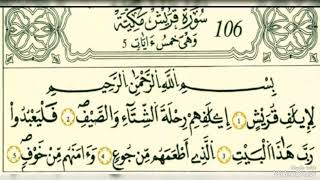 سُورَةُ قُرَيْشٍ مَكِّيَّة
106
وَهِيَ خَمْسُ ءَايَاتٍ 5
بِسْمِ اللَّهِ الرَّحْمَٰنِ الرَّحِيمِ
لِإِيلَٰفِ قُرَيْشٍ ١ إِۦلَٰفِهِمْ رِحْلَةَ الشِّتَآءِ وَالصَّيْفِ ٢ فَلْيَعْبُدُوا۟
رَبَّ هَٰذَا الْبَيْتِ ٣ الَّذِىٓ أَطْعَمَهُم مِّن جُوعٍ ٤ وَءَامَنَهُم مِّنْ خَوْفٍ ٥